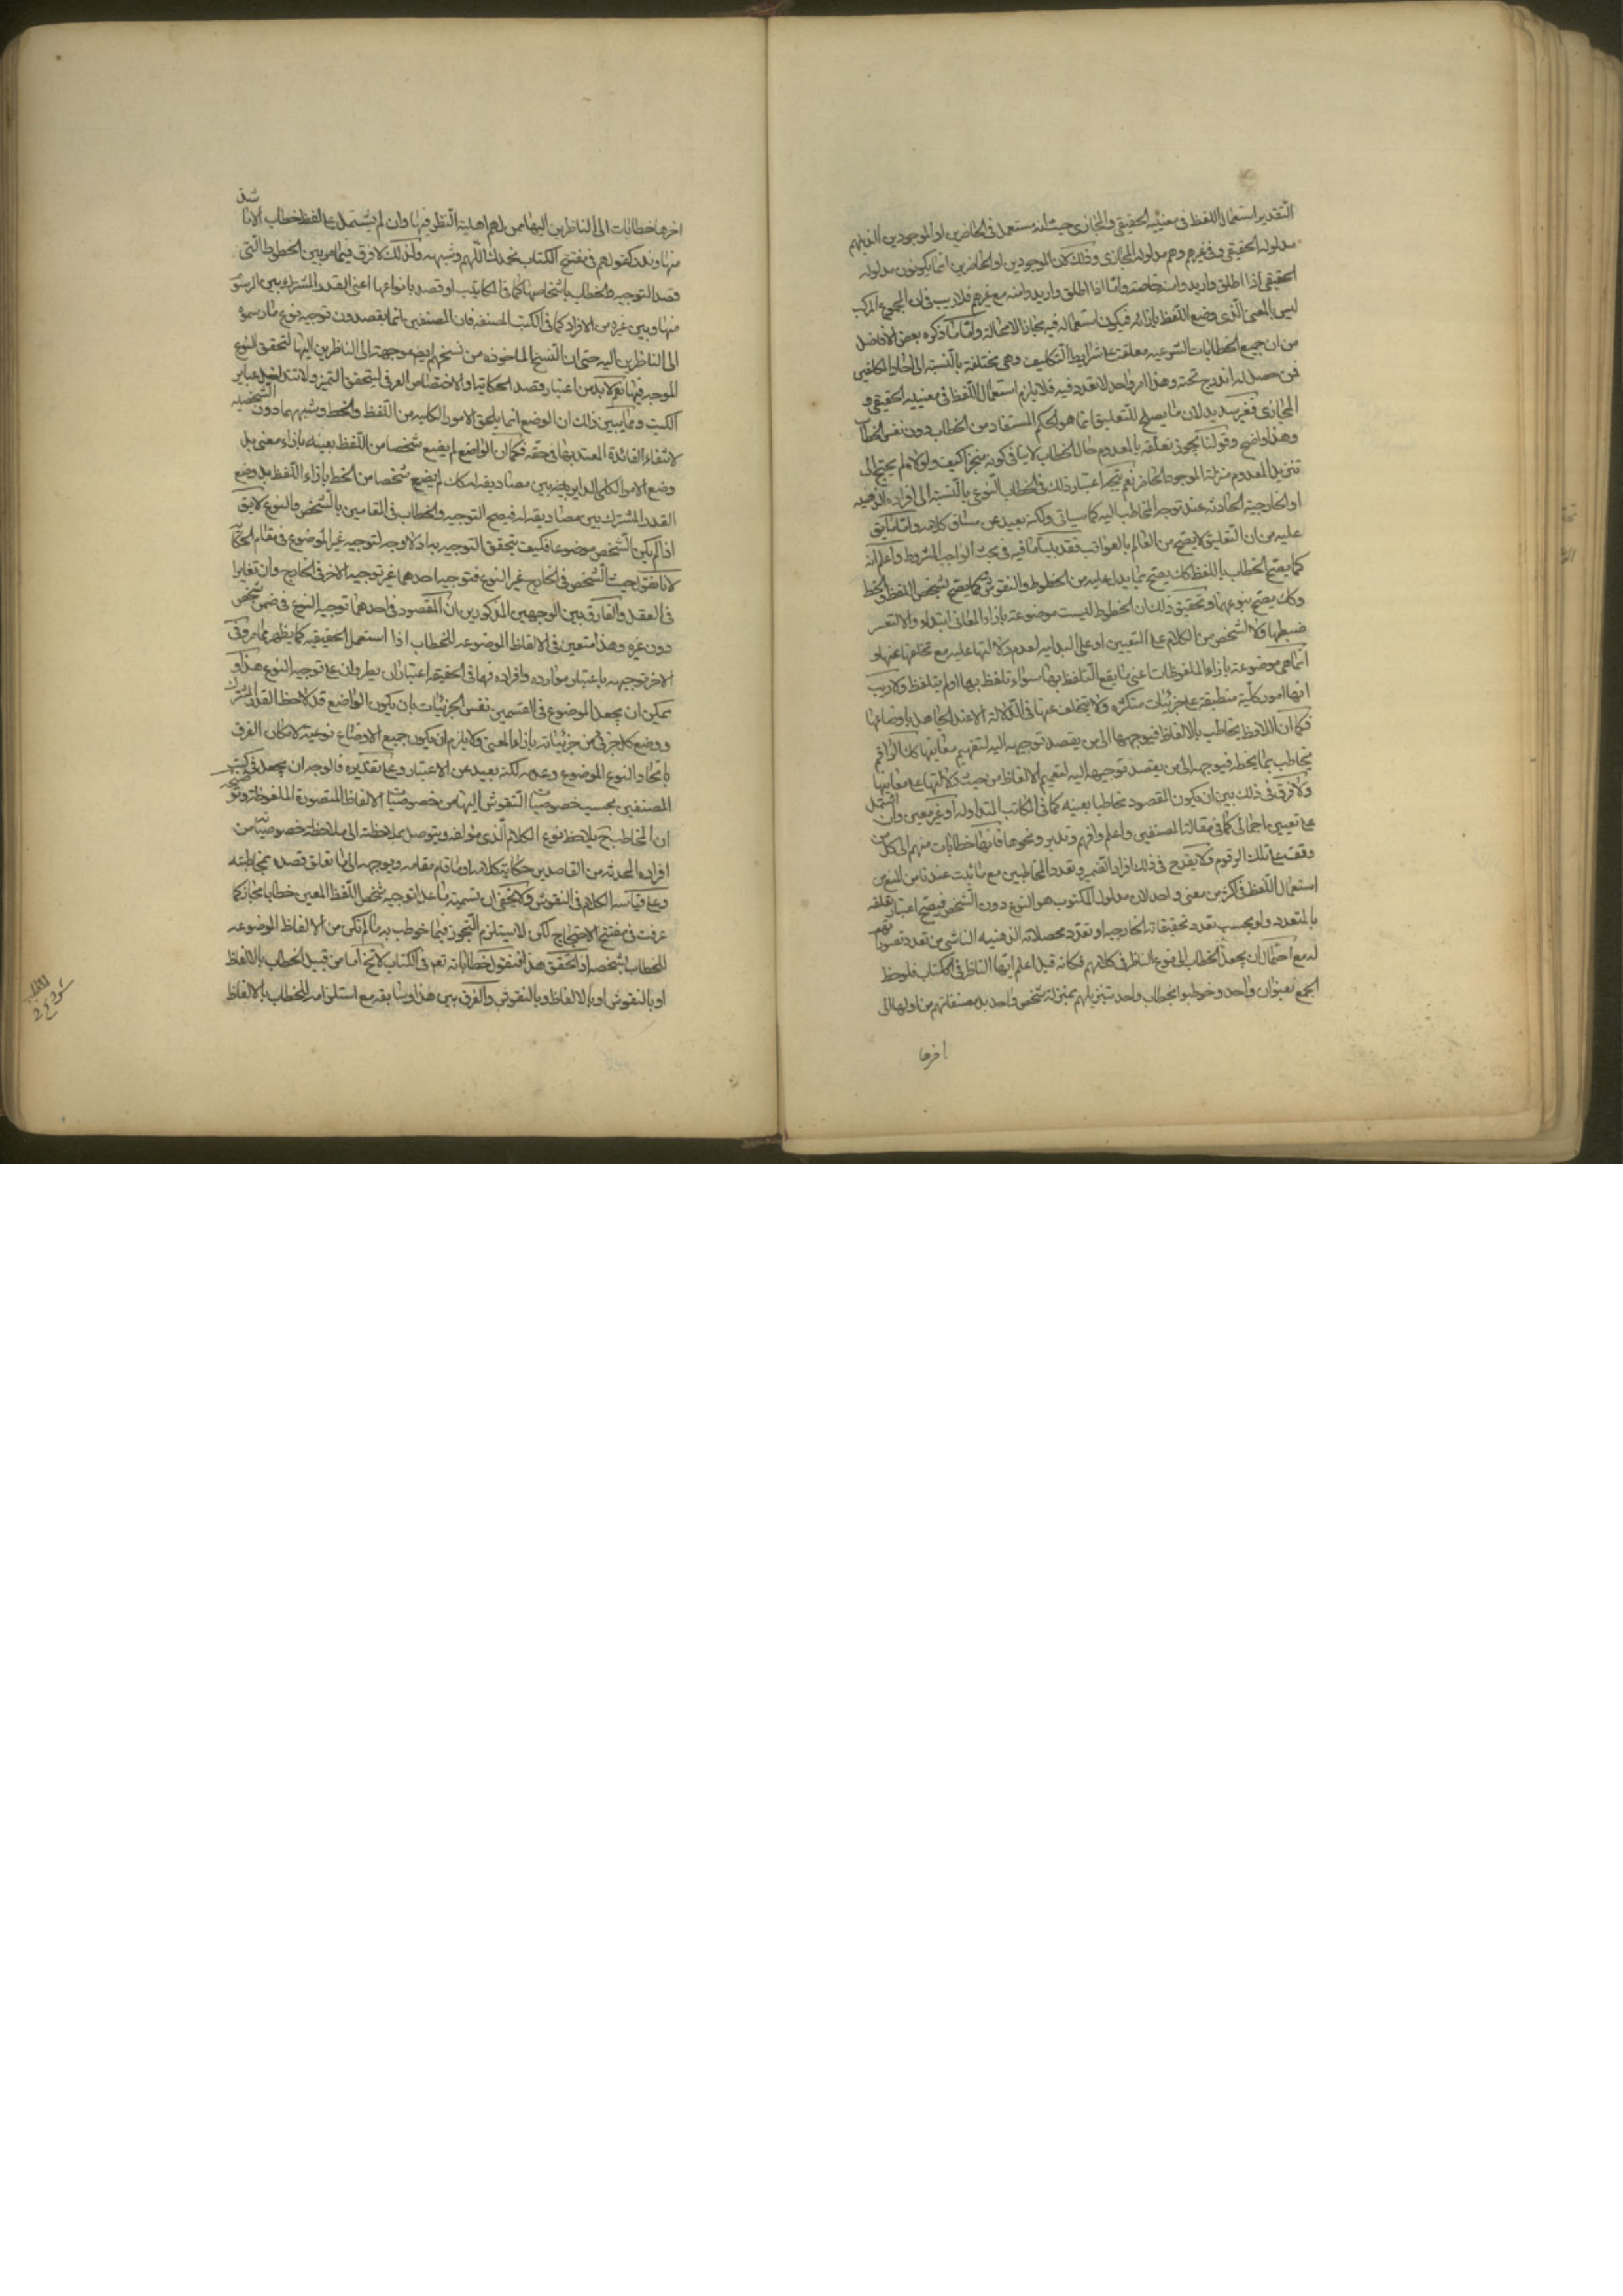 التقدير استعمال اللفظ في معنييه الحقيقي والمجازي حيث انه مستعمل في الحاضرين او الموجودين الذين هم
مدلوله الحقيقي وفي غيرهم وهم مدلوله المجازي وذلك لان الموجودين او الحاضرين انما يكونون مدلوله
الحقيقي اذا اطلق واريدوا منه خاصة واما اذا اطلق واريدوا منه مع غيرهم فلا ريب في ان المجموع المركب
ليس بالمعنى الذي وضع اللفظ بازائه فيكون استعماله فيه مجازا لا محالة واما ما ذكره بعض الافاضل
من ان جميع الخطابات الشرعيه معلقة على شرايط التكاليف وهي مختلفة بالنسبة الى احاد المكلفين
فمن حصل له اندرج تحته وهذا امر واحد لا تعدد فيه فلا يلزم استعمال اللفظ في معنييه الحقيقي و
المجازي فغير سديد لان ما يصلح للتعليق انما هو الحكم المستفاد من الخطاب دون نفس الخطاب
وهذا واضح وقولنا يجوز تعلقه بالمعدوم حال الخطاب لا ينافي كونه منجزا كيف ولولاه لم يحتج الى
تنزيل المعدوم منزلة الموجود الحاضر نعم يتجه اعتبار ذلك في الخطاب النوعي بالنسبة الى افراده الذهنيه
او الخارجية الحادثه عند توجه المخاطب اليه كما سياتي ولكنه بعيد عن مساق كلامه واما ما يق
عليه من ان التعليق لا يصح من العالم بالعواقب فقد بينا ما فيه في بحث الواجب المشروط واعلم انه
كما يصح الخطاب باللفظ كك يصح بما يدل عليه من الخطوط والنقوش وكما يصح بشخص اللفظ والخط
وكك يصح بنوعهما وتحقيق ذلك ان الخطوط ليست موضوعة بازاء المعاني ابتداء والا لتعسر
ضبطها ولا لشخص من الكلام على التعيين او على البدليه لعدم دلالتها عليه مع تخلفها عنها و
انما هي موضوعة بازاء الملفوظات اعني ما يقع التلفظ بها سواء تلفظ بها او لم يتلفظ ولا ريب
انها امور كلية منطبقة على جزئيات متكثره ولا يتخلف عنها في الدلالة الا عند الجاهل باوضاعها
فكما ان اللافظ يخاطب بالالفاظ فيوجهها الى من يقصد توجيهه اليه لتفهيم معانيها كك الراقم
يخاطب بما يخطه فيوجهه الى من يقصد توجيهها اليه لتفهيم الالفاظ من حيث دلالتها على معانيها
ولا فرق في ذلك بين ان يكون المقصود مخاطبا بعينه كما في المكاتب المتداوله او غير معين وان اشتمل
على تعيين اجمالي كما في مقالة المصنفين واعلم وافهم وتدبر ونحوها فانها خطابات منهم الى كل من
وقف على تلك الرقوم ولا يقدح في ذلك افراد الضمير وتعدد المخاطبين مع ما ثبت عندنا من المنع من
استعمال اللفظ في اكثر من معنى واحد لان مدلول المكتوب هو النوع دون الشخص فيصح اعتبار تعلقه
بالمتعدد ولو بحسب تعدد تحقيقاته الخارجيه او تعدد محصلاته الذهنيه الناشي من تعدد تصوراتهم
له مع احتمال ان يجعل الخطاب الى نوع الناظر في كلامهم فكانه قيل اعلم ايها الناظر في الكتاب فلوحظ
الجمع بعنوان واحد وخوطبوا بخطاب واحد بتنزيلهم بمنزلة شخص واحد بل مصنفاتهم من اولها الى
اخرها
اخرها خطابات الى الناظرين اليها ممن لهم اهلية النظر فيها وان لم يشتمل على لفظ خطاب الا ما شذ
منها وندر كقولهم في مفتتح الكتاب نحمدك اللهم وشبهه ولذلك لا فرق فيما مر بين الخطوط التي
قصد التوجيه والخطاب باشخاصها كما في المكاتيب او قصد بانواعها اعني القدر المشترك بين المرسوم
منها وبين غيره من الافراد كما في الكتب المصنفه فان المصنفين انما يقصدون توجيه نوع ما رسموه
الى الناظرين اليه حتى ان النسخ الماخوذه من نسخهم ايضا موجهة الى الناظرين اليها لتحقق النوع
الموجه فيها نعم لا بد من اعتبار قصد الحكاية او الاختصاص العرفي ليتحقق التميز ولا تتداخل عباير
الكتب ومما يبين ذلك ان الوضع انما يلحق الامور الكليه من اللفظ والخط وشبههما دون الشخصيه
لانتفاء الفائدة المعتد بها في حقه فكما ان الواضع لم يضع شخصا من اللفظ بعينه بازاء معنى بل
وضع الامر الكلي الداير بين مصاديقه له كك لم يضع شخصا من الخط بازاء اللفظ بل وضع
القدر المشترك بين مصاديقه له فيصح التوجيه والخطاب في المقامين بالشخص والنوع لا يق
اذا لم يكن الشخص موضوعا فكيف يتحقق التوجيه به اذ لا وجه لتوجيه غير الموضوع في مقام
لانا نقول حيث الشخص في الخارج عين النوع فتوجيه احدهما عين توجيه الاخر في الخارج وان تغايرا
في العقل والفارق بين الوجهين المذكورين ان المقصود في احدهما توجيه النوع في ضمن شخص
دون غيره وهذا متعين في الالفاظ الموضوعه للخطاب اذا استعمل الحقيقيه كما يظهر مما مر وفي
الاخر توجيهه باعتبار موارده وافراده فهما في الحقيقه اعتباران يطروان على توجيه النوع هذا و
يمكن ان يجعل الموضوع في القسمين نفس الجزئيات بان يكون الواضع قد لاحظ القدر المشترك
ووضع كل جزئي من جزئياته بازاء المعنى ولا يلزم ان يكون جميع الاوضاع نوعية لامكان الفرق
باتحاد النوع الموضوع وعدمه لكنه بعيد عن الاعتبار وعلى تقديره فالوجه ان يجعل في كتب
المصنفين بحسب خصوصيات النقوش اليها من خصوصيات الالفاظ المتصورة الملفوظة
ان المخاطب ح يلاحظ نوع الكلام الذي مؤلفه ويتوصل بملاحظته الى ملاحظة خصوصيات من
افراده المحدثه من القاصدين حكاية كلامه او ما قام مقامه ويوجهه الى ما تعلق قصده بمخاطبته
وعلى قياسه الكلام في النقوش ولا يخفى ان تسمية ما عدا توجيه شخص اللفظ المعين خطابا مجاز كما
عرفت في مفتتح الاحتجاج لكن لا يستلزم التجوز فيما خوطب به ما لم تكن من الالفاظ الموضوعه
للخطاب بشخصه اذا تحقق هذا فنقول خطاباته تعم في الكتاب لا تخ اما من قبيل الخطاب بالالفاظ
او بالنقوش او بالالفاظ وبالنقوش والفرق بين هذا وسابقه مع استلزامه للخطاب بالالفاظ